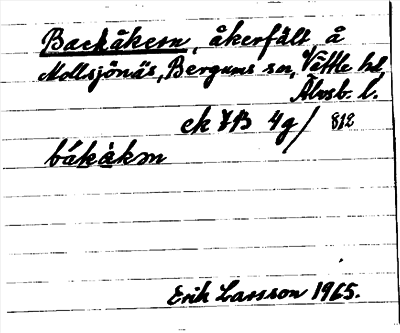 Backåkern, åkerfält å
Mollsjönäs, Bergums sn, Vättle hd
Älvsb. l.
ek 7B 4g/ 812
båkåkɘn
Erik Larsson 1965.